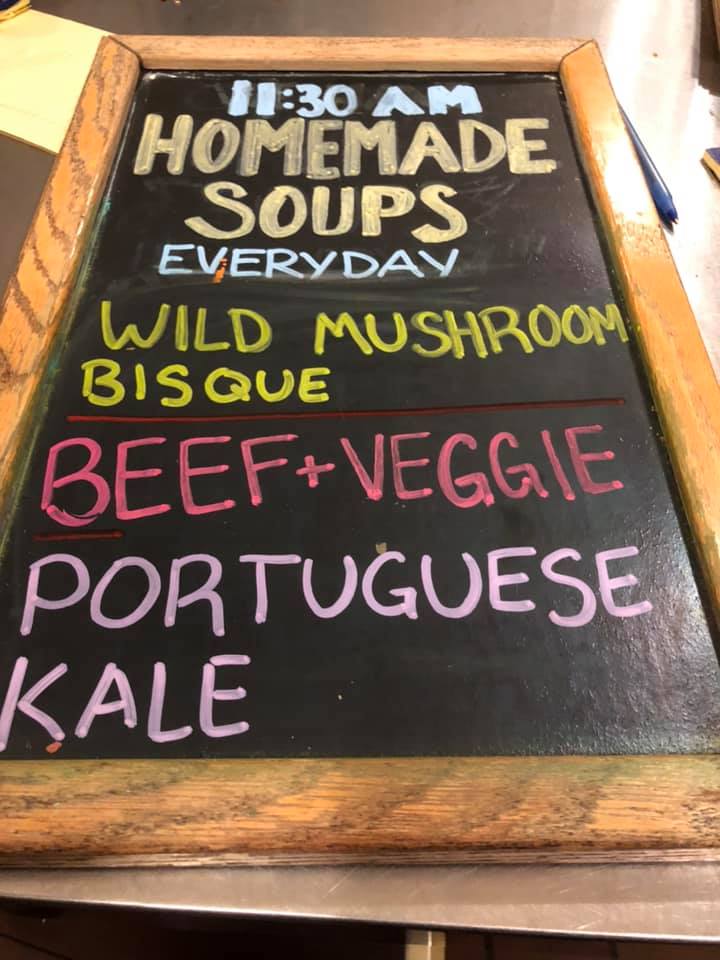 11:30 AM
HOMEMADE
SOUPS
EVERYDAY
WILD MUSHROOM
BISQUE
BEEF+VEGGIE
PORTUGUESE
KALE